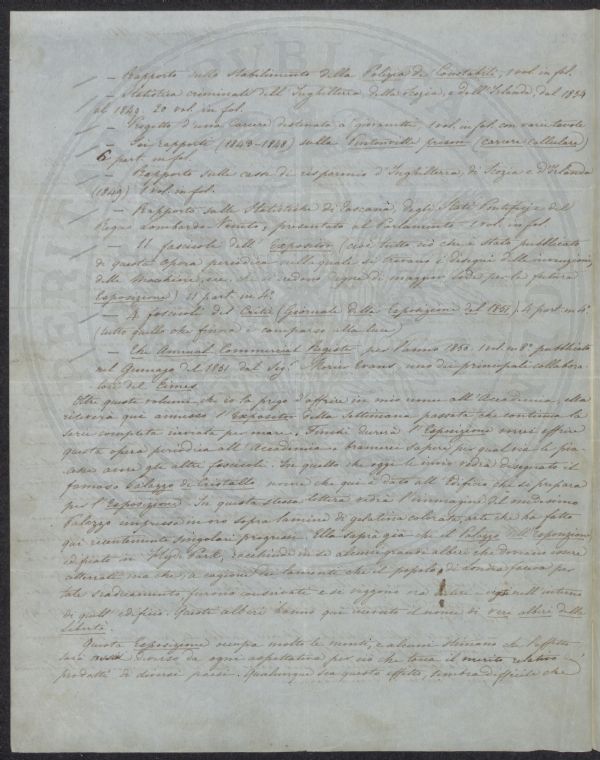 — Rapporto sullo stabilimento della Polizia di Constabili, 1 vol. in fol.
— Statistica criminale dell'Inghilterra della Scozia, e dell'Irlanda, dal 1834
al 1849. 20 vol. in fol.
— Progetto d'una Carcere destinata a 1 vol. in fol. con varie tavole
— Sei rapporti (1843-1848) sulla Pentonville prison (carcere cellulare)
6 part. in fol.
— Rapporto sulle casse di risparmio d'Inghilterra, di Scozia e d'Irlanda
(1849) 1 vol. in fol.
— Rapporto sulle Statistiche di Toscana, degli Stati Pontificj e del
Regno Lombardo Veneto, presentato al Parlamento 1 vol. in fol.
— 11 fascicoli dell'Expositor (cioè tutto ciò che è stato pubblicato
di questa Opera periodica nella quale si trovano i disegni delle invenzioni,
delle Macchine, ecc. che si credono degne di maggior lode per la futura
Esposizione) 11 part. in 4°.
— 4 fascicoli del (Giornale della Esposizione del 1851) 4 part. in 4°
(tutto quello che finora è comparso alla luce)
— The Annual Commercial Register per l'anno 1850. 1 vol. in 8° pubblicato
nel Gennajo del 1851 dal Sig. Evans, uno dei principali collabora-
tori del Times.
Oltre questi volumi, che io la prego d'offrire in mio nome all'Accademia, ella
riceverà qui annesso l'Expositor della Settimana passata che continua la
serie completa inviata per mare. Finchè durerà l'Esposizione vorrei offrire
questa opera periodica all'Accademia e bramerei sapere per qual via le pia-
avere gli altri fascicoli. In quello che oggi le invio vedrà disegnato il
famoso Palazzo di Cristallo nome che qui è dato all'Edificio che si prepara
per l'Esposizione. In questa stessa lettera vedrà l'immagine del medesimo
Palazzo impressa in oro sopra lamine di gelatina colorate, arte che ha fatto
qui recentemente singolari progressi. Ella saprà già che il Palazzo dell'Esposizione,
edificato in Hyde Park, racchiude in se alcuni grandi alberi che dovevano essere
atterrati ma che, a cagione dei lamenti che il popolo di Londra faceva per
tale furono conservati e si veggono ora nell'interno
di quell'edificio. Questi alberi hanno qui ricevuto il nome di veri alberi della
libertà.
Questa Esposizione occupa molto le menti, e alcuni stimano che l'effetto
sarà diverso da ogni aspettativa per ciò che tocca il merito relativo
prodotti di diversi paesi. Qualunque sia questo effetto, sembra difficile che